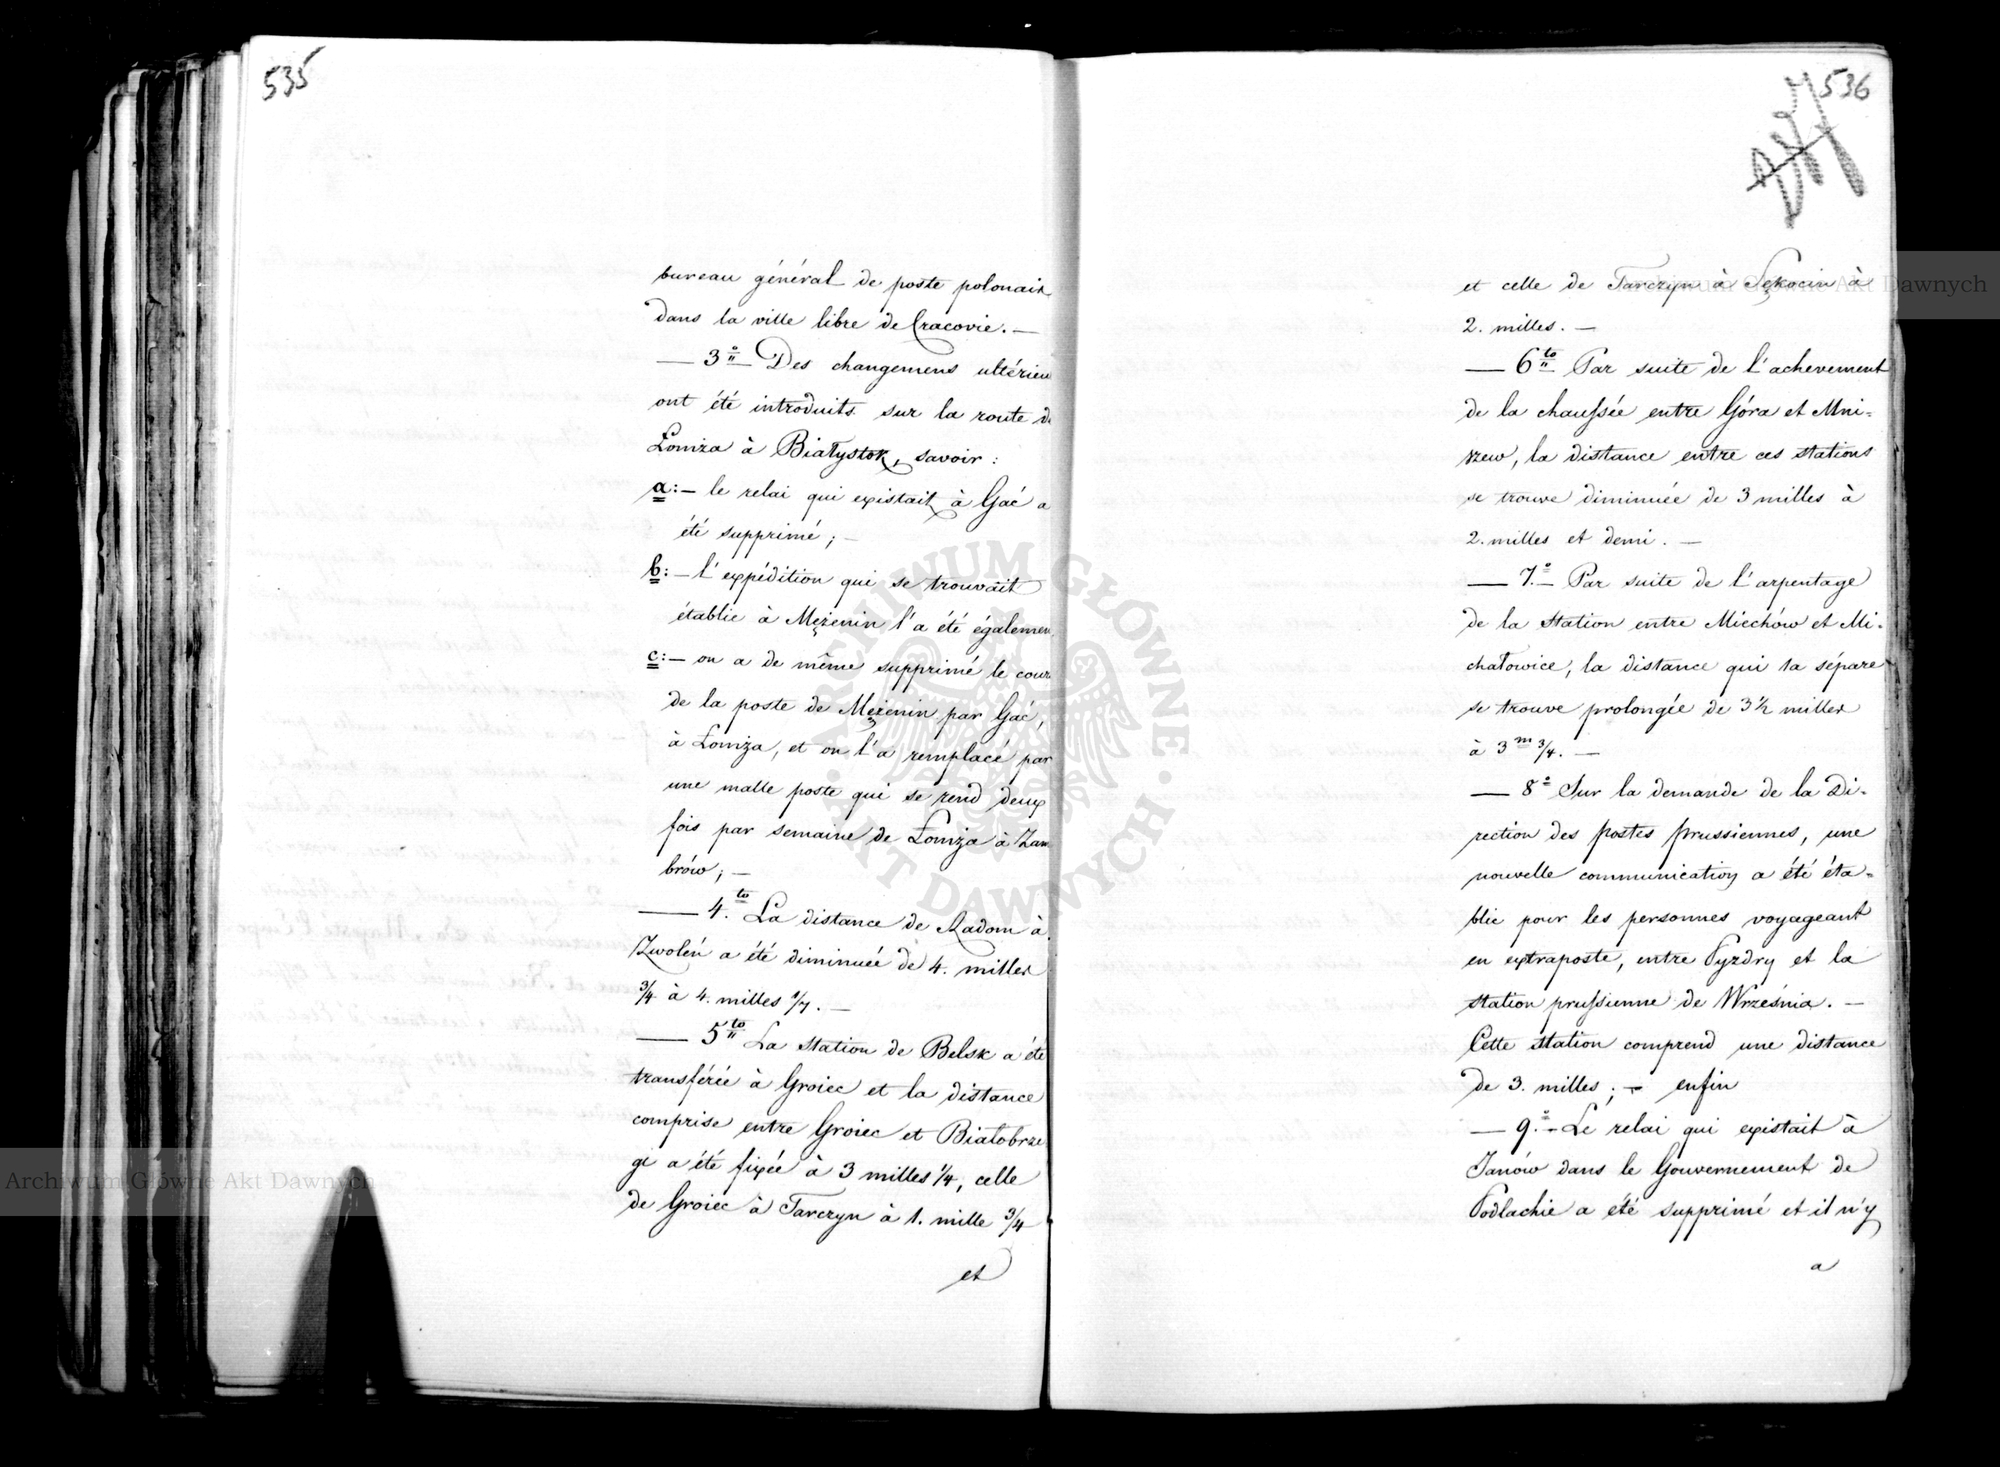 535
bureau général de poste polonais
dans la ville libre de Cracovie. —
— 3º Des changemens ultérieu
ont été introduits sur la route d
Łomża à Białystok, savoir :
a: — le relai qui existait à Gać a
été supprimé ; —
b: — l'expédition qui se trouvait
établie à Mężenin l'a été égalemen
c: — on a de même supprimé le cour
de la poste de Mężenin par Gać,
à Łomża, et on l'a remplacé par
une malle poste qui se rend deux
fois par semaine de Łomża à Zam
brów ; —
— 4.to La distance de Radom à
Zwoleń a été diminuée de 4. milles
3/4 à 4. milles 1/7. —
— 5to La station de Belsk a été
transférée à Groiec et la distance
comprise entre Groiec et Białobrze
gi a été fixée à 3 milles 1/4, celle
de Groiec à Tarczyn à 1. mille 3/4
et
536
et celle de Tarczyn à Sękocin à
2. milles. —
— 6to Par suite de l'achevement
de la chaussée entre Góra et Mni=
szew, la distance entre ces stations
se trouve diminuée de 3 milles à
2. milles et demi. —
— 7.º Par suite de l'arpentage
de la station entre Miechów et Mi=
chałowice, la distance qui la sépare
se trouve prolongée de 3 1/2 milles
à 3 m 3/4. —
— 8º Sur la demande de la Di=
rection des postes prussiennes, une
nouvelle communication a été éta=
blie pour les personnes voyageant
en extraposte, entre Pyzdry et la
station prussienne de Września. —
Cette station comprend une distance
de 3. milles ; — enfin
— 9.º Le relai qui existait à
Janów dans le Gouvernement de
Podlachie a été supprimé et il n'y
a
Archiwum Główne Akt Dawnych
ARCHIWUM GŁÓWNE · AKT DAWNYCH ·
Archiwum Główne Akt Dawnych